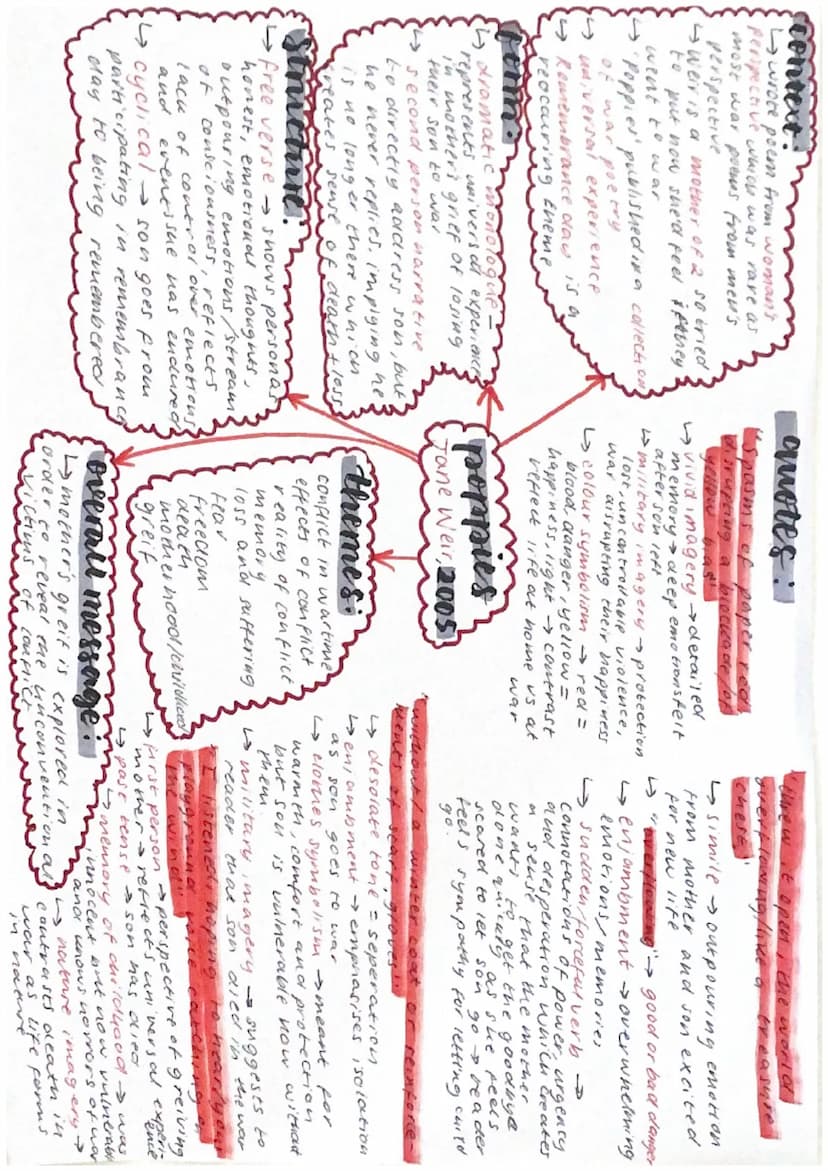 context:
↳ wrote poem from woman's
perspective which was rare as
most war poems from men's
perspective
↳ Weir is a mother of 2 so tried
to put how she'd feel if they
went to war
↳ 'Poppies' published in a collection
of war poetry
↳ universal experience
↳ Remembrance day is a
reoccuring theme
form:
↳ dramatic monologue =
represents universal experience
in mother's grief of losing
their son to war
↳ second person narrative
to directly address son, but
he never replies, implying he
is no longer there which
creates sense of death + loss
structure:
↳ free verse → shows personal
honest, emotional thoughts,
outpouring emotions/stream
of consciousness, reflects
lack of control over emotions
and events she has endured
↳ cyclical → son goes from
participating in remembrance
day to being remembered
poppies
Jane Weir 2005
themes:
conflict in wartime
effects of conflict
reality of conflict
memory
loss and suffering
fear
freedom
death
motherhood/childhood
grief
overall message:
↳ mother's greif is explored in
order to reveal the unconventional
victims of conflict
quotes:
"Spasms of paper red
disrupting a blockade of
yellow bias"
↳ vivid imagery → detailed
memory → deep emotions felt
after son left
↳ military imagery → protection
lost, uncontrollable violence,
war disrupting their happiness
↳ colour symbolism → red =
blood, danger, yellow =
happiness, light → contrast
reflect life at home vs at
war
threw it open, the world
overflowing like a treasure
chest"
↳ simile → outpouring emotion
from mother and son excited
for new life
↳ "overflowing" → good or bad danger
↳ enjambment → overwhelming
emotions/memories
↳ sudden/forceful verb →
connotations of power, urgency
and desperation which creates
a sense that the mother
wants to get the goodbye
done quickly as she feels
scared to let son go → reader
feels sympathy for letting child
go.
"without/a winter coat or reinforce-
ments of scarf, gloves"
↳ desolate tone = seperation
↳ enjambment → emphasises isolation
as son goes to war
↳ clothes symbolism → meant for
warmth, comfort and protection
but son is vulnerable now without
them
↳ military imagery → suggests to
reader that son died in the war
"I listened, hoping to hear/your
playground voice catching on
the wind"
↳ first person → perspective of greiving
mother → reflects universal experience
↳ past tense → son has died
↳ memory of childhood → was
innocent but now vulnerable
and knows horrors of war
↳ nature imagery →
contrasts death in
war as life forms
in nature